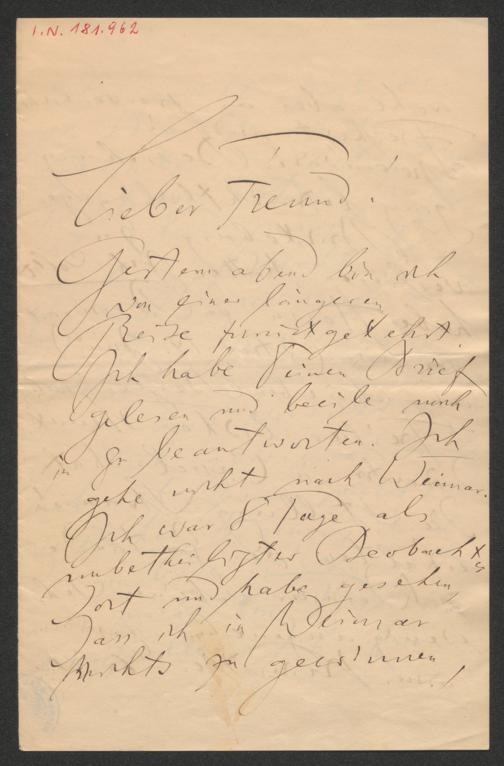 I.N. 181.962
Lieber Freund!
Gestern abend bin ich
von einer längeren
Reise zurückgekehrt.
Ich habe Deinen Brief
gelesen und beeile mich
ihn zu beantworten. Ich
gehe nicht nach Weimar.
Ich war 8 Tage als
unbetheiligter Beobachter
dort und habe gesehen,
dass ich in Weimar
nichts zu gewinnen,